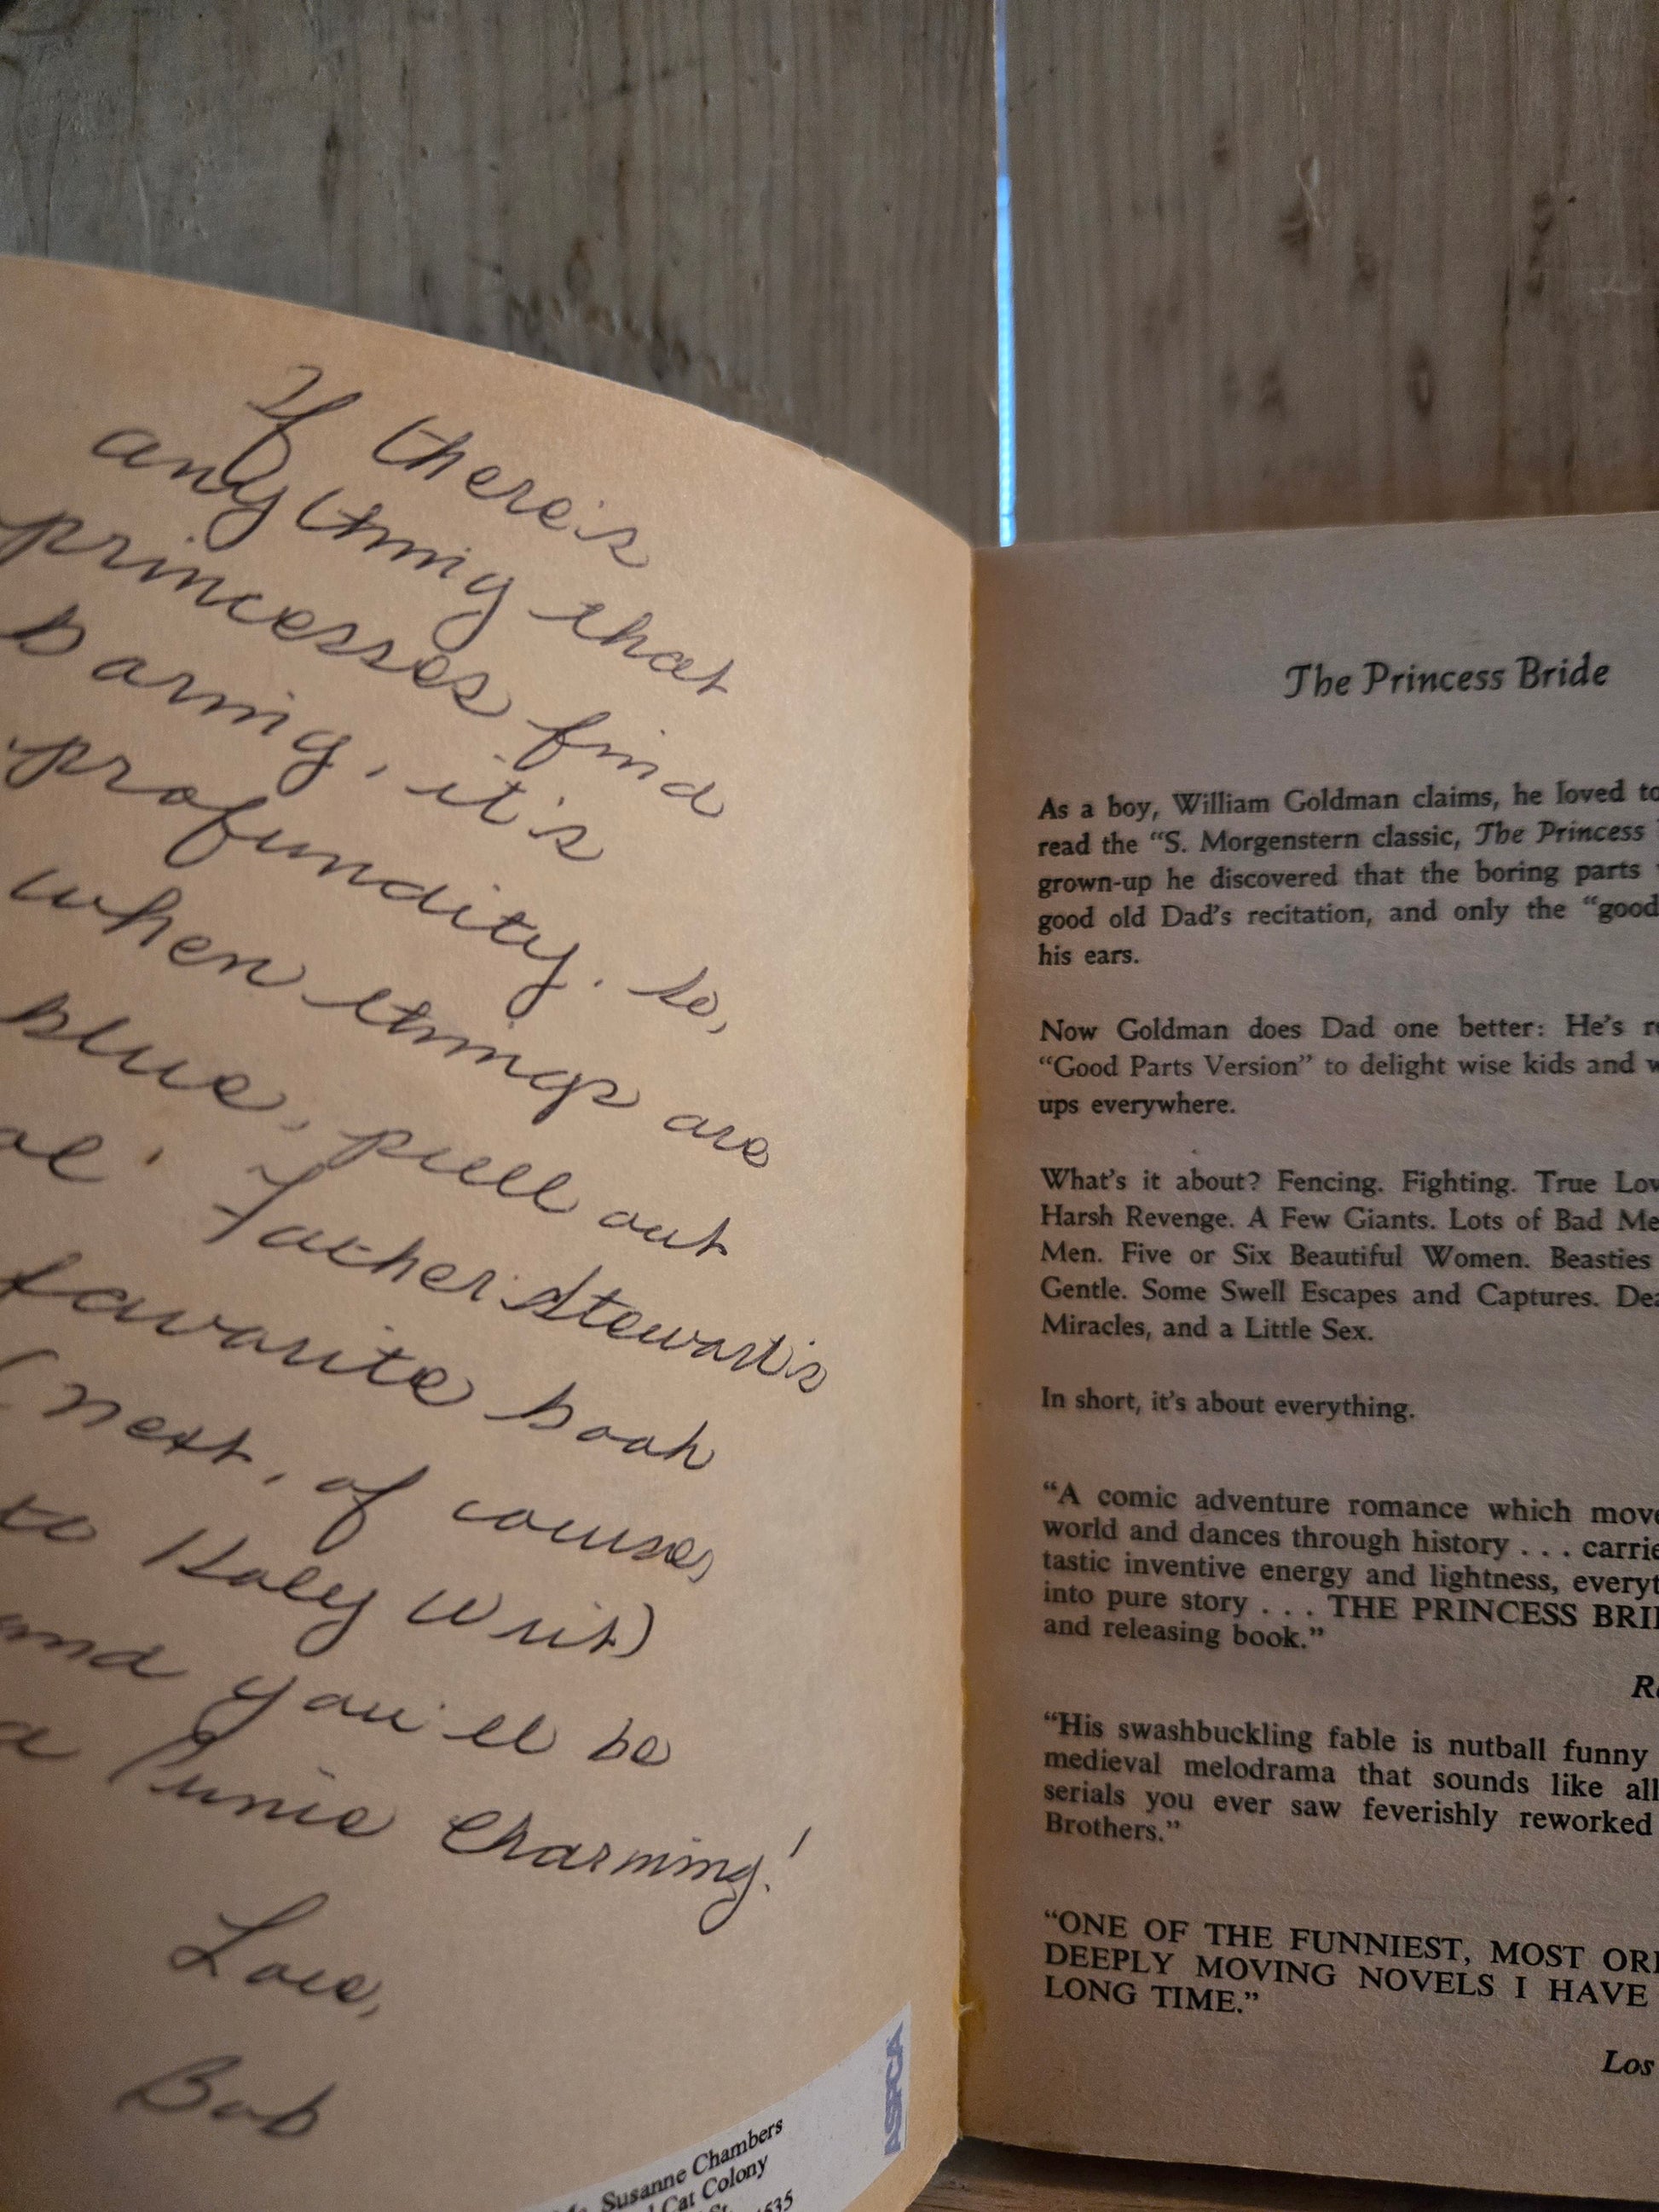 If there's
anything that
princesses find
boring, it's
profundity. So,
when things are
blue, pull out
ol' Father Stewart's
favorite book
(next, of course,
to Holy Writ)
and you'll be
a Prince Charming!
Love,
Bob
ASPCA
Susanne Chambers
Cat Colony
St.
The Princess Bride
As a boy, William Goldman claims, he loved to
read the "S. Morgenstern classic, The Princess
grown-up he discovered that the boring parts
good old Dad's recitation, and only the "good
his ears.
Now Goldman does Dad one better: He's re
"Good Parts Version" to delight wise kids and w
ups everywhere.
What's it about? Fencing. Fighting. True Lov
Harsh Revenge. A Few Giants. Lots of Bad Me
Men. Five or Six Beautiful Women. Beasties
Gentle. Some Swell Escapes and Captures. Dea
Miracles, and a Little Sex.
In short, it's about everything.
"A comic adventure romance which move
world and dances through history . . . carrie
tastic inventive energy and lightness, everyt
into pure story . . . THE PRINCESS BRI
and releasing book."
R
"His swashbuckling fable is nutball funny
medieval melodrama that sounds like all
serials you ever saw feverishly reworked
Brothers."
"ONE OF THE FUNNIEST, MOST ORI
DEEPLY MOVING NOVELS I HAVE
LONG TIME."
Los